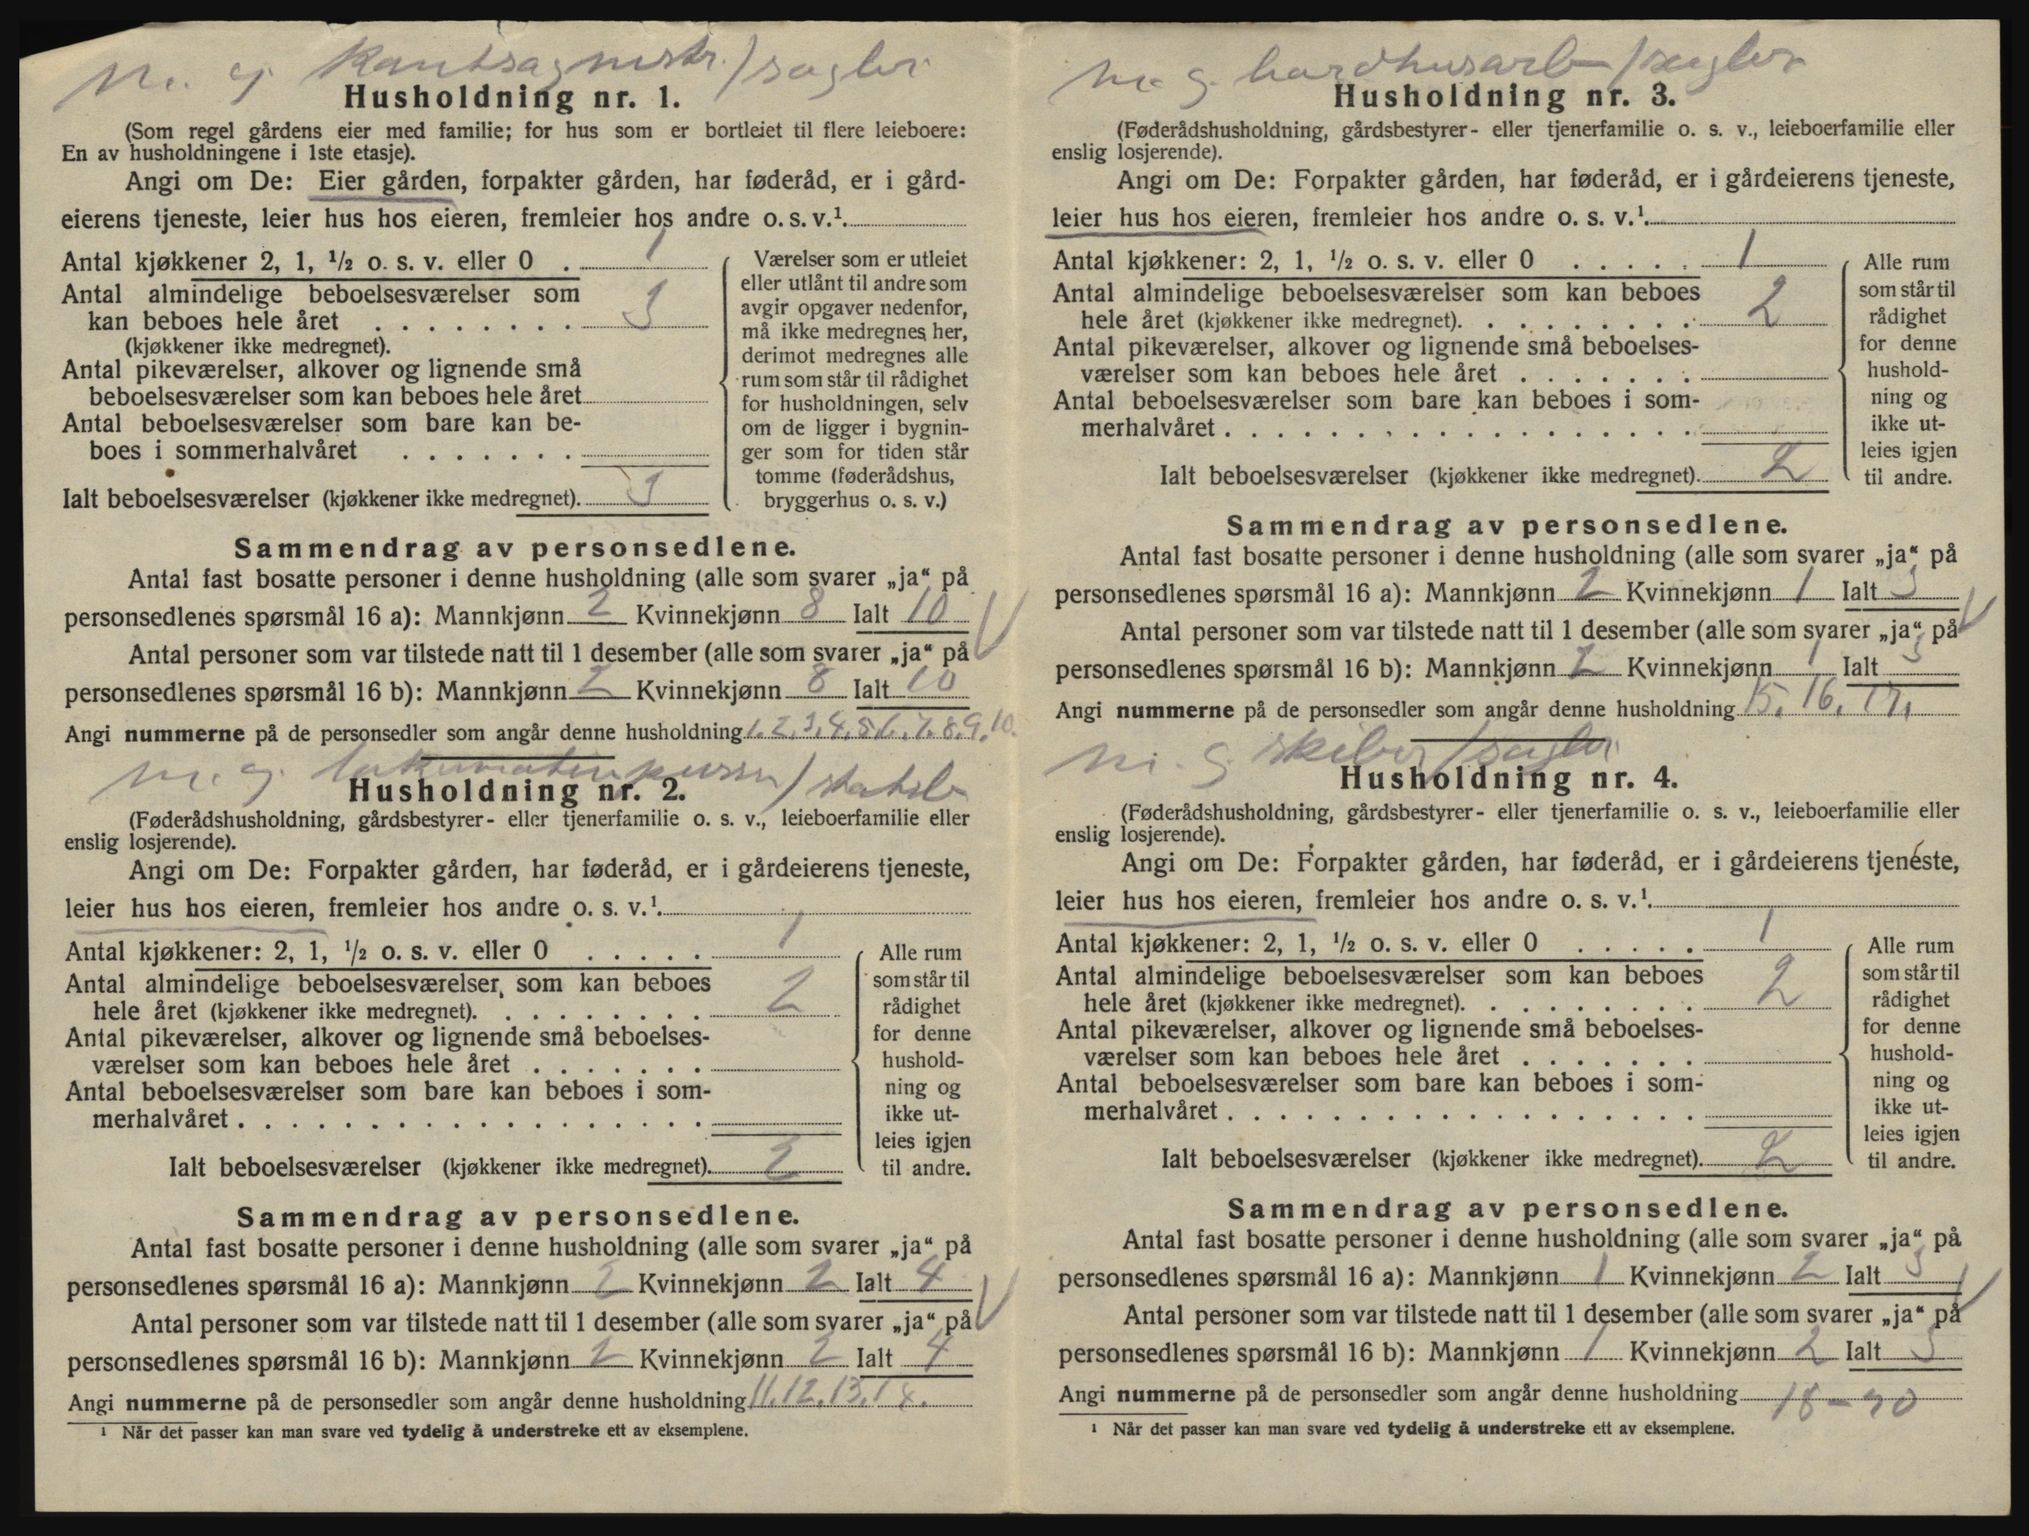 m. g. Kantsagmstr./sagbr.
Husholdning nr. 1.
(Som regel gårdens eier med familie; for hus som er bortleiet til flere leieboere:
En av husholdningene i 1ste etasje).
Angi om De: Eier gården, forpakter gården, har føderåd, er i gård-
eierens tjeneste, leier hus hos eieren, fremleier hos andre o. s. v.¹.
Antal kjøkkener 2, 1, ½ o. s. v. eller 0 . 1
Antal almindelige beboelsesværelser som
kan beboes hele året . . . . . . . . 3
(kjøkkener ikke medregnet).
Antal pikeværelser, alkover og lignende små
beboelsesværelser som kan beboes hele året
Antal beboelsesværelser som bare kan be-
boes i sommerhalvåret . . . . . . .
Ialt beboelsesværelser (kjøkkener ikke medregnet). 3
Værelser som er utleiet
eller utlånt til andre som
avgir opgaver nedenfor,
må ikke medregnes her,
derimot medregnes alle
rum som står til rådighet
for husholdningen, selv
om de ligger i bygnin-
ger som for tiden står
tomme (føderådshus,
bryggerhus o. s. v.)
Sammendrag av personsedlene.
Antal fast bosatte personer i denne husholdning (alle som svarer „ja“ på
personsedlenes spørsmål 16 a): Mannkjønn 2 Kvinnekjønn 8 Ialt 10
Antal personer som var tilstede natt til 1 desember (alle som svarer „ja“ på
personsedlenes spørsmål 16 b): Mannkjønn 2 Kvinnekjønn 8 Ialt 10
Angi nummerne på de personsedler som angår denne husholdning 1.2.3.4.5.6.7.8.9.10.
m. g. lokomotivpusser/statsb
Husholdning nr. 2.
(Føderådshusholdning, gårdsbestyrer- eller tjenerfamilie o. s. v., leieboerfamilie eller
enslig losjerende).
Angi om De: Forpakter gården, har føderåd, er i gårdeierens tjeneste,
leier hus hos eieren, fremleier hos andre o. s. v.¹.
Antal kjøkkener: 2, 1, ½ o. s. v. eller 0 . . . . . 1
Antal almindelige beboelsesværelser som kan beboes
hele året (kjøkkener ikke medregnet). . . . . . . . . 2
Antal pikeværelser, alkover og lignende små beboelses-
værelser som kan beboes hele året . . . . . . .
Antal beboelsesværelser som bare kan beboes i som-
merhalvåret . . . . . . . . . . . . . . . . . .
Ialt beboelsesværelser (kjøkkener ikke medregnet). 2
Alle rum
som står til
rådighet
for denne
hushold-
ning og
ikke ut-
leies igjen
til andre.
Sammendrag av personsedlene.
Antal fast bosatte personer i denne husholdning (alle som svarer „ja“ på
personsedlenes spørsmål 16 a): Mannkjønn 2 Kvinnekjønn 2 Ialt 4
Antal personer som var tilstede natt til 1 desember (alle som svarer „ja“ på
personsedlenes spørsmål 16 b): Mannkjønn 2 Kvinnekjønn 2 Ialt 4
Angi nummerne på de personsedler som angår denne husholdning 11.12.13.14.
¹ Når det passer kan man svare ved tydelig å understreke ett av eksemplene.
m. g. hardhusarb/sagbr
Husholdning nr. 3.
(Føderådshusholdning, gårdsbestyrer- eller tjenerfamilie o. s. v., leieboerfamilie eller
enslig losjerende).
Angi om De: Forpakter gården, har føderåd, er i gårdeierens tjeneste,
leier hus hos eieren, fremleier hos andre o. s. v.¹.
Antal kjøkkener: 2, 1, ½ o. s. v. eller 0 . . . . . 1
Antal almindelige beboelsesværelser som kan beboes
hele året (kjøkkener ikke medregnet). . . . . . . . . 2
Antal pikeværelser, alkover og lignende små beboelses-
værelser som kan beboes hele året . . . . . . .
Antal beboelsesværelser som bare kan beboes i som-
merhalvåret . . . . . . . . . . . . . . . . . .
Ialt beboelsesværelser (kjøkkener ikke medregnet). 2
Alle rum
som står til
rådighet
for denne
hushold-
ning og
ikke ut-
leies igjen
til andre.
Sammendrag av personsedlene.
Antal fast bosatte personer i denne husholdning (alle som svarer „ja“ på
personsedlenes spørsmål 16 a): Mannkjønn 2 Kvinnekjønn 1 Ialt 3
Antal personer som var tilstede natt til 1 desember (alle som svarer „ja“ på
personsedlenes spørsmål 16 b): Mannkjønn 2 Kvinnekjønn 1 Ialt 3
Angi nummerne på de personsedler som angår denne husholdning 15. 16. 17.
m. g. skiber/sagbr
Husholdning nr. 4.
(Føderådshusholdning, gårdsbestyrer- eller tjenerfamilie o. s. v., leieboerfamilie eller
enslig losjerende).
Angi om De: Forpakter gården, har føderåd, er i gårdeierens tjeneste,
leier hus hos eieren, fremleier hos andre o. s. v.¹.
Antal kjøkkener: 2, 1, ½ o. s. v. eller 0 . . . . . 1
Antal almindelige beboelsesværelser som kan beboes
hele året (kjøkkener ikke medregnet). . . . . . . . . 2
Antal pikeværelser, alkover og lignende små beboelses-
værelser som kan beboes hele året . . . . . . .
Antal beboelsesværelser som bare kan beboes i som-
merhalvåret . . . . . . . . . . . . . . . . . .
Ialt beboelsesværelser (kjøkkener ikke medregnet). 2
Alle rum
som står til
rådighet
for denne
hushold-
ning og
ikke ut-
leies igjen
til andre.
Sammendrag av personsedlene.
Antal fast bosatte personer i denne husholdning (alle som svarer „ja“ på
personsedlenes spørsmål 16 a): Mannkjønn 1 Kvinnekjønn 2 Ialt 3
Antal personer som var tilstede natt til 1 desember (alle som svarer „ja“ på
personsedlenes spørsmål 16 b): Mannkjønn 1 Kvinnekjønn 2 Ialt 3
Angi nummerne på de personsedler som angår denne husholdning 18-20
¹ Når det passer kan man svare ved tydelig å understreke ett av eksemplene.